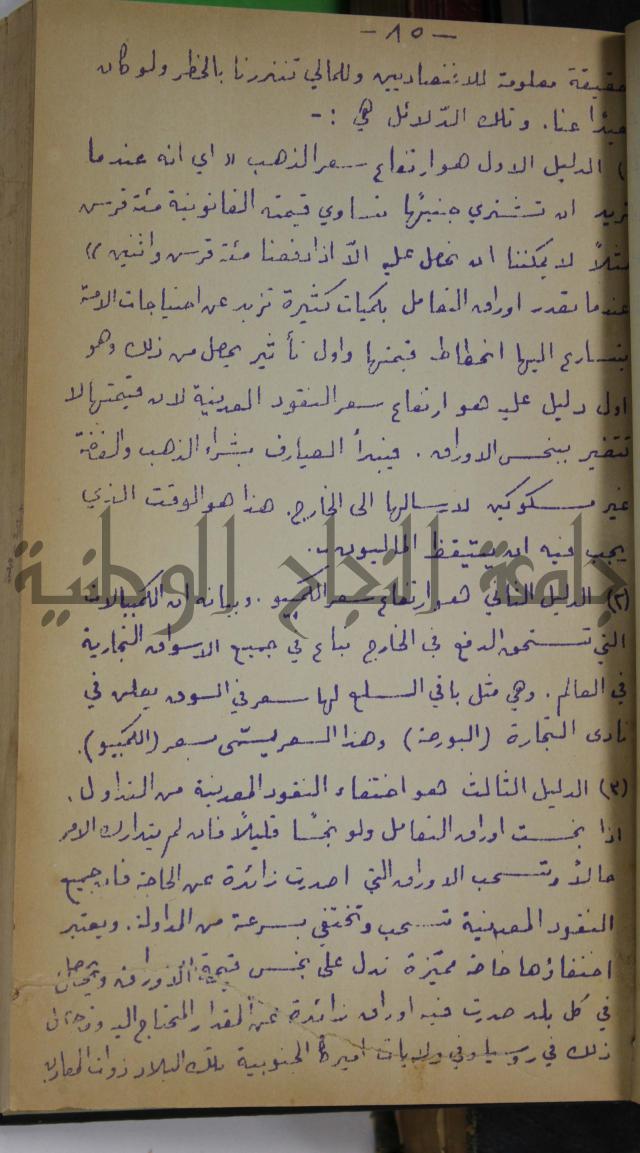 - ٨٥ -
حقيقة معلومة للاقتصاديين وللمالي تنذرنا بالخطر ولو كان
بعيدًا عنا. وتلك الدّلائل هي :-
) الدليل الاول هو ارتفاع سعر الذهب « اي انه عندما
نريد ان نشتري جنيهًا تساوي قيمته القانونية مئة قرش
مثلاً لا يمكننا ان نحصل عليه الاّ اذا دفعنا مئة قرش واثنين »
عندما تصدر اوراق التعامل بكميات كثيرة تزيد عن احتياجات الامة
يتسارع اليها انحطاط قيمتها واول تأثير يحصل من ذلك وهو
اول دليل عليه هو ارتفاع سعر النقود المعدنية لان قيمتها لا
تتغير ببخس الاوراق. فيبدأ الصيارف بشراء الذهب والفضة
غير مسكوكين لارسالها الى الخارج. هذا هو الوقت الذي
يجب فيه ان يستيقظ الماليون.
جامعة النجاح الوطنية
(٢) الدليل الثاني هو ارتفاع سعر الكمبيو. وبيانه ان الكمبيالات
التي تستحق الدفع في الخارج تباع في جميع الاسواق التجارية
في العالم. وهي مثل باقي السلع لها سعر في السوق يعلن في
نادى التجارة (البورصة) وهذا السعر يسمّى بسعر (الكمبيو).
(٣) الدليل الثالث هو اختفاء النقود المعدنية من التداول.
اذا بخست اوراق التعامل ولو بخسًا قليلاً فان لم يتدارك الامر
حالاً وتسحب الاوراق التي اصدرت زائدة عن الحاجة فان جميع
النقود المعدنية تسحب وتختفي بسرعة من المداولة. ويعتبر
اختفاؤها خاصة مميّزة تدل على بخس قيمة الاوراق
في كل بلد صدرت فيه اوراق زائدة عن المقدار المحتاج اليه
ذلك في روسيا وفي ولايات اميركا الجنوبية تلك البلاد ذوات المعادن